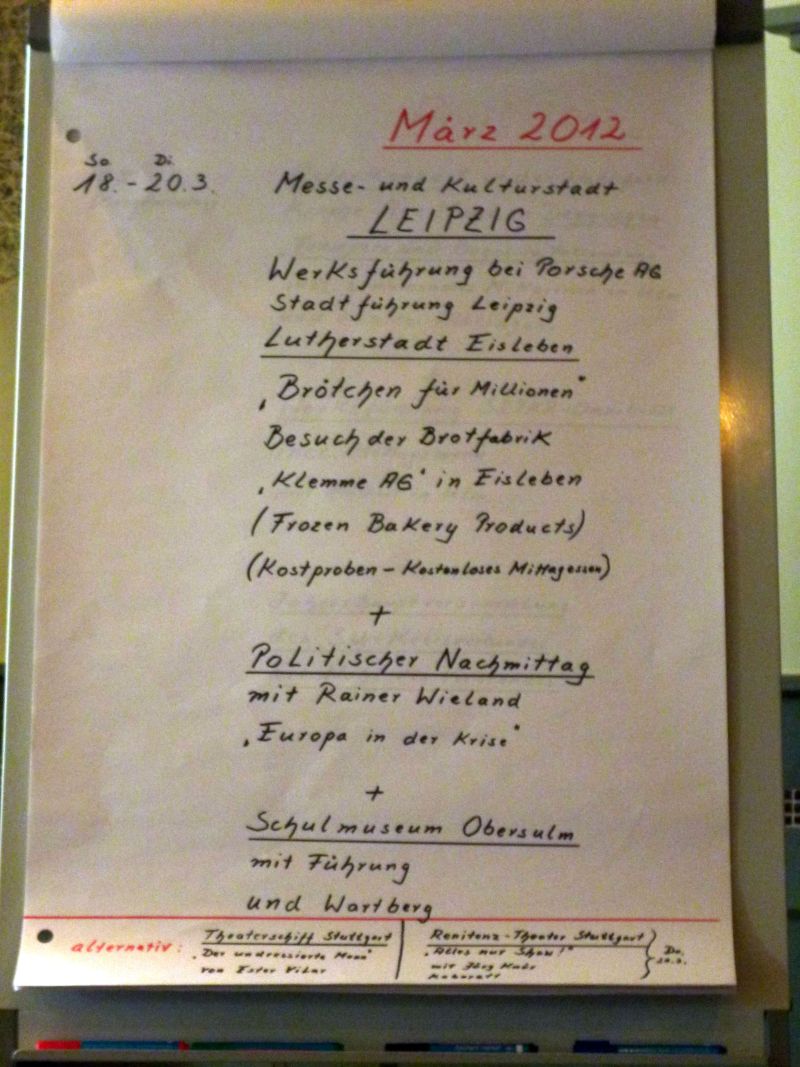 März 2012
So Di
18.-20.3. Messe- und Kulturstadt
LEIPZIG
Werksführung bei Porsche AG
Stadtführung Leipzig
Lutherstadt Eisleben
„Brötchen für Millionen“
Besuch der Brotfabrik
„Klemme AG“ in Eisleben
(Frozen Bakery Products)
(Kostproben - Kostenloses Mittagessen)
+
Politischer Nachmittag
mit Rainer Wieland
„Europa in der Krise“
+
Schulmuseum Obersulm
mit Führung
und Wartberg
alternativ: Theaterschiff Stuttgart
„Der undressierte Mann“
von Ester Vilar
Renitenz-Theater Stuttgart
„Alles nur Show!“
mit Jörg
Kabarett
Do.